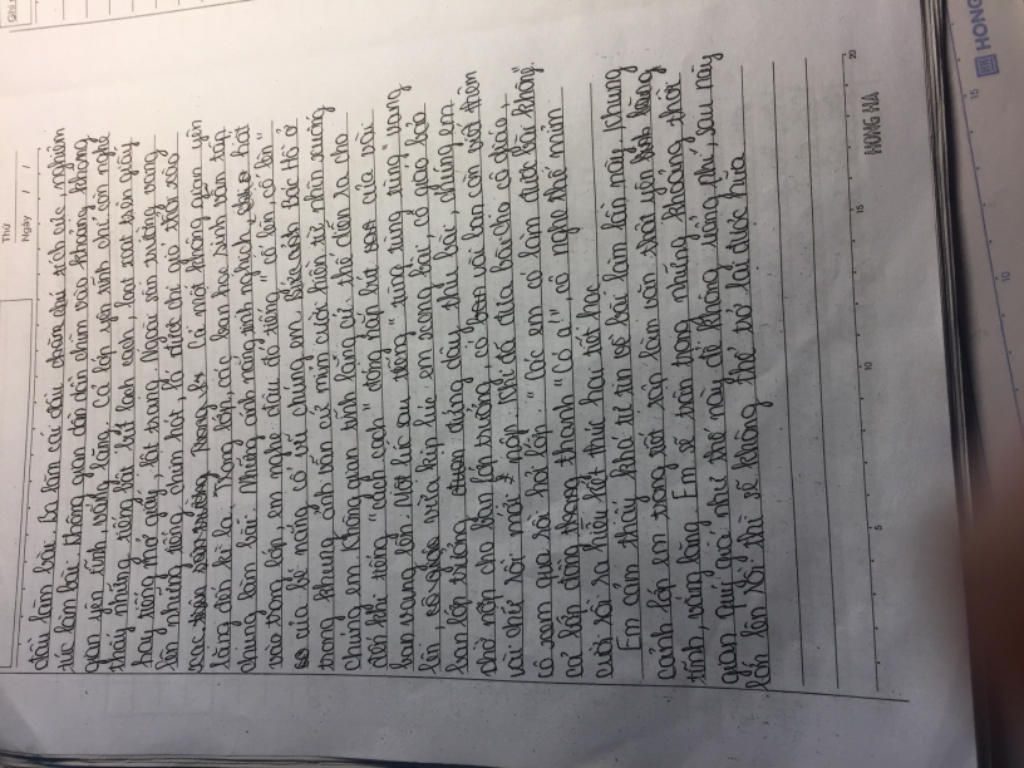 Thứ
Ngày / /
đầu làm bài. Ba làm cái đài chăm chú tích cực, nghiêm
túc làm bài. Không gian dần dần chìm vào khoảng không
gian yên tĩnh, vắng lặng. Cả lớp yên sinh chỉ còn nghe
thấy những tiếng bút loạt soạt, loạt soạt trên giấy
hay tiếng mở giấy, lật trang. Ngoài sân trường vang
lên những tiếng chim hót, lá thì gió thổi xào
xạc Cả một không gian yên
lặng đến kì lạ. Trong lớp, các bạn học sinh vẫn tập
chung làm bài. Những ánh nắng tinh nghịch, hắt
vào trong lớp em nghe đâu đó tiếng "cố lên, cố lên"
của bé nắng cổ vũ chúng em. Bác tổ ở
trong khung ảnh vẫn cứ mỉm cười hiền từ nhìn xuống
chúng em. Không gian tĩnh lặng cứ thế diễn ra cho
đến khi tiếng "lạch cạch" đóng nắp bút của vài
bạn vang lên. Một lúc sau tiếng "tùng tùng tùng" vang
lên, vừa kịp lúc em xong bài, cô giáo bảo
bạn lớp trưởng đứng dậy thu bài, chúng em
nhờ nộp cho bạn lớp trưởng, có vài bạn còn viết thêm
vài chữ rồi mới nộp. Nhớ đó đưa bài cho cô giáo,
cô xem qua rồi hỏi lớp. "Các em có làm được bài không"
cả lớp đồng thanh "Có ạ", cô nghe thế mỉm
cười rồi ra hiệu kết thúc hai tiết học.
Em cảm thấy khá tự tin về bài làm lần này, khung
cảnh lớp em trong tiết tập làm văn thật yên
tĩnh, vắng lặng. Em sẽ trân trọng những khoảng thời
gian quý giá như thế này để không uổng phí, sau này
lớn lên rồi thì sẽ không thể trở lại được nữa.
5 10 15 20
HONG HA
10 15
HONG